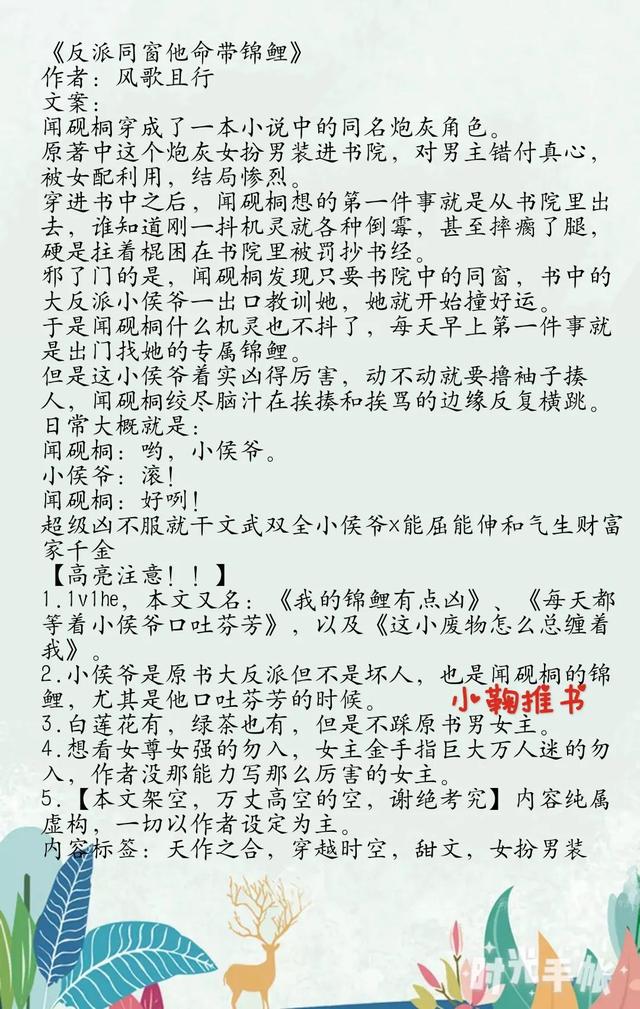 《反派同窗他命带锦鲤》
作者：风歌且行
文案：
闻砚桐穿成了一本小说中的同名炮灰角色。
原著中这个炮灰女扮男装进书院，对男主错付真心，
被女配利用，结局惨烈。
穿进书中之后，闻砚桐想的第一件事就是从书院里出
去，谁知道刚一抖机灵就各种倒霉，甚至摔瘸了腿，
硬是拄着棍困在书院里被罚抄书经。
邪了门的是，闻砚桐发现只要书院中的同窗，书中的
大反派小侯爷一出口教训她，她就开始撞好运。
于是闻砚桐什么机灵也不抖了，每天早上第一件事就
是出门找她的专属锦鲤。
但是这小侯爷着实凶得厉害，动不动就要撸袖子揍
人，闻砚桐绞尽脑汁在挨揍和挨骂的边缘反复横跳。
日常大概就是：
闻砚桐：哟，小侯爷。
小侯爷：滚！
闻砚桐：好咧！
超级凶不服就干文武双全小侯爷x能屈能伸和气生财富
家千金
【高亮注意！！】
1.1v1he，本文又名：《我的锦鲤有点凶》、《每天都
等着小侯爷口吐芬芳》，以及《这小废物怎么总缠着
我》。
2.小侯爷是原书大反派但不是坏人，也是闻砚桐的锦
鲤，尤其是他口吐芬芳的时候。
小鞠推书
3.白莲花有，绿茶也有，但是不踩原书男女主。
4.想看女尊女强的勿入，女主金手指巨大万人迷的勿
入，作者没那能力写那么厉害的女主。
5.【本文架空，万丈高空的空，谢绝考究】内容纯属
虚构，一切以作者设定为主。
内容标签：天作之合，穿越时空，甜文，女扮男装
时光手帐